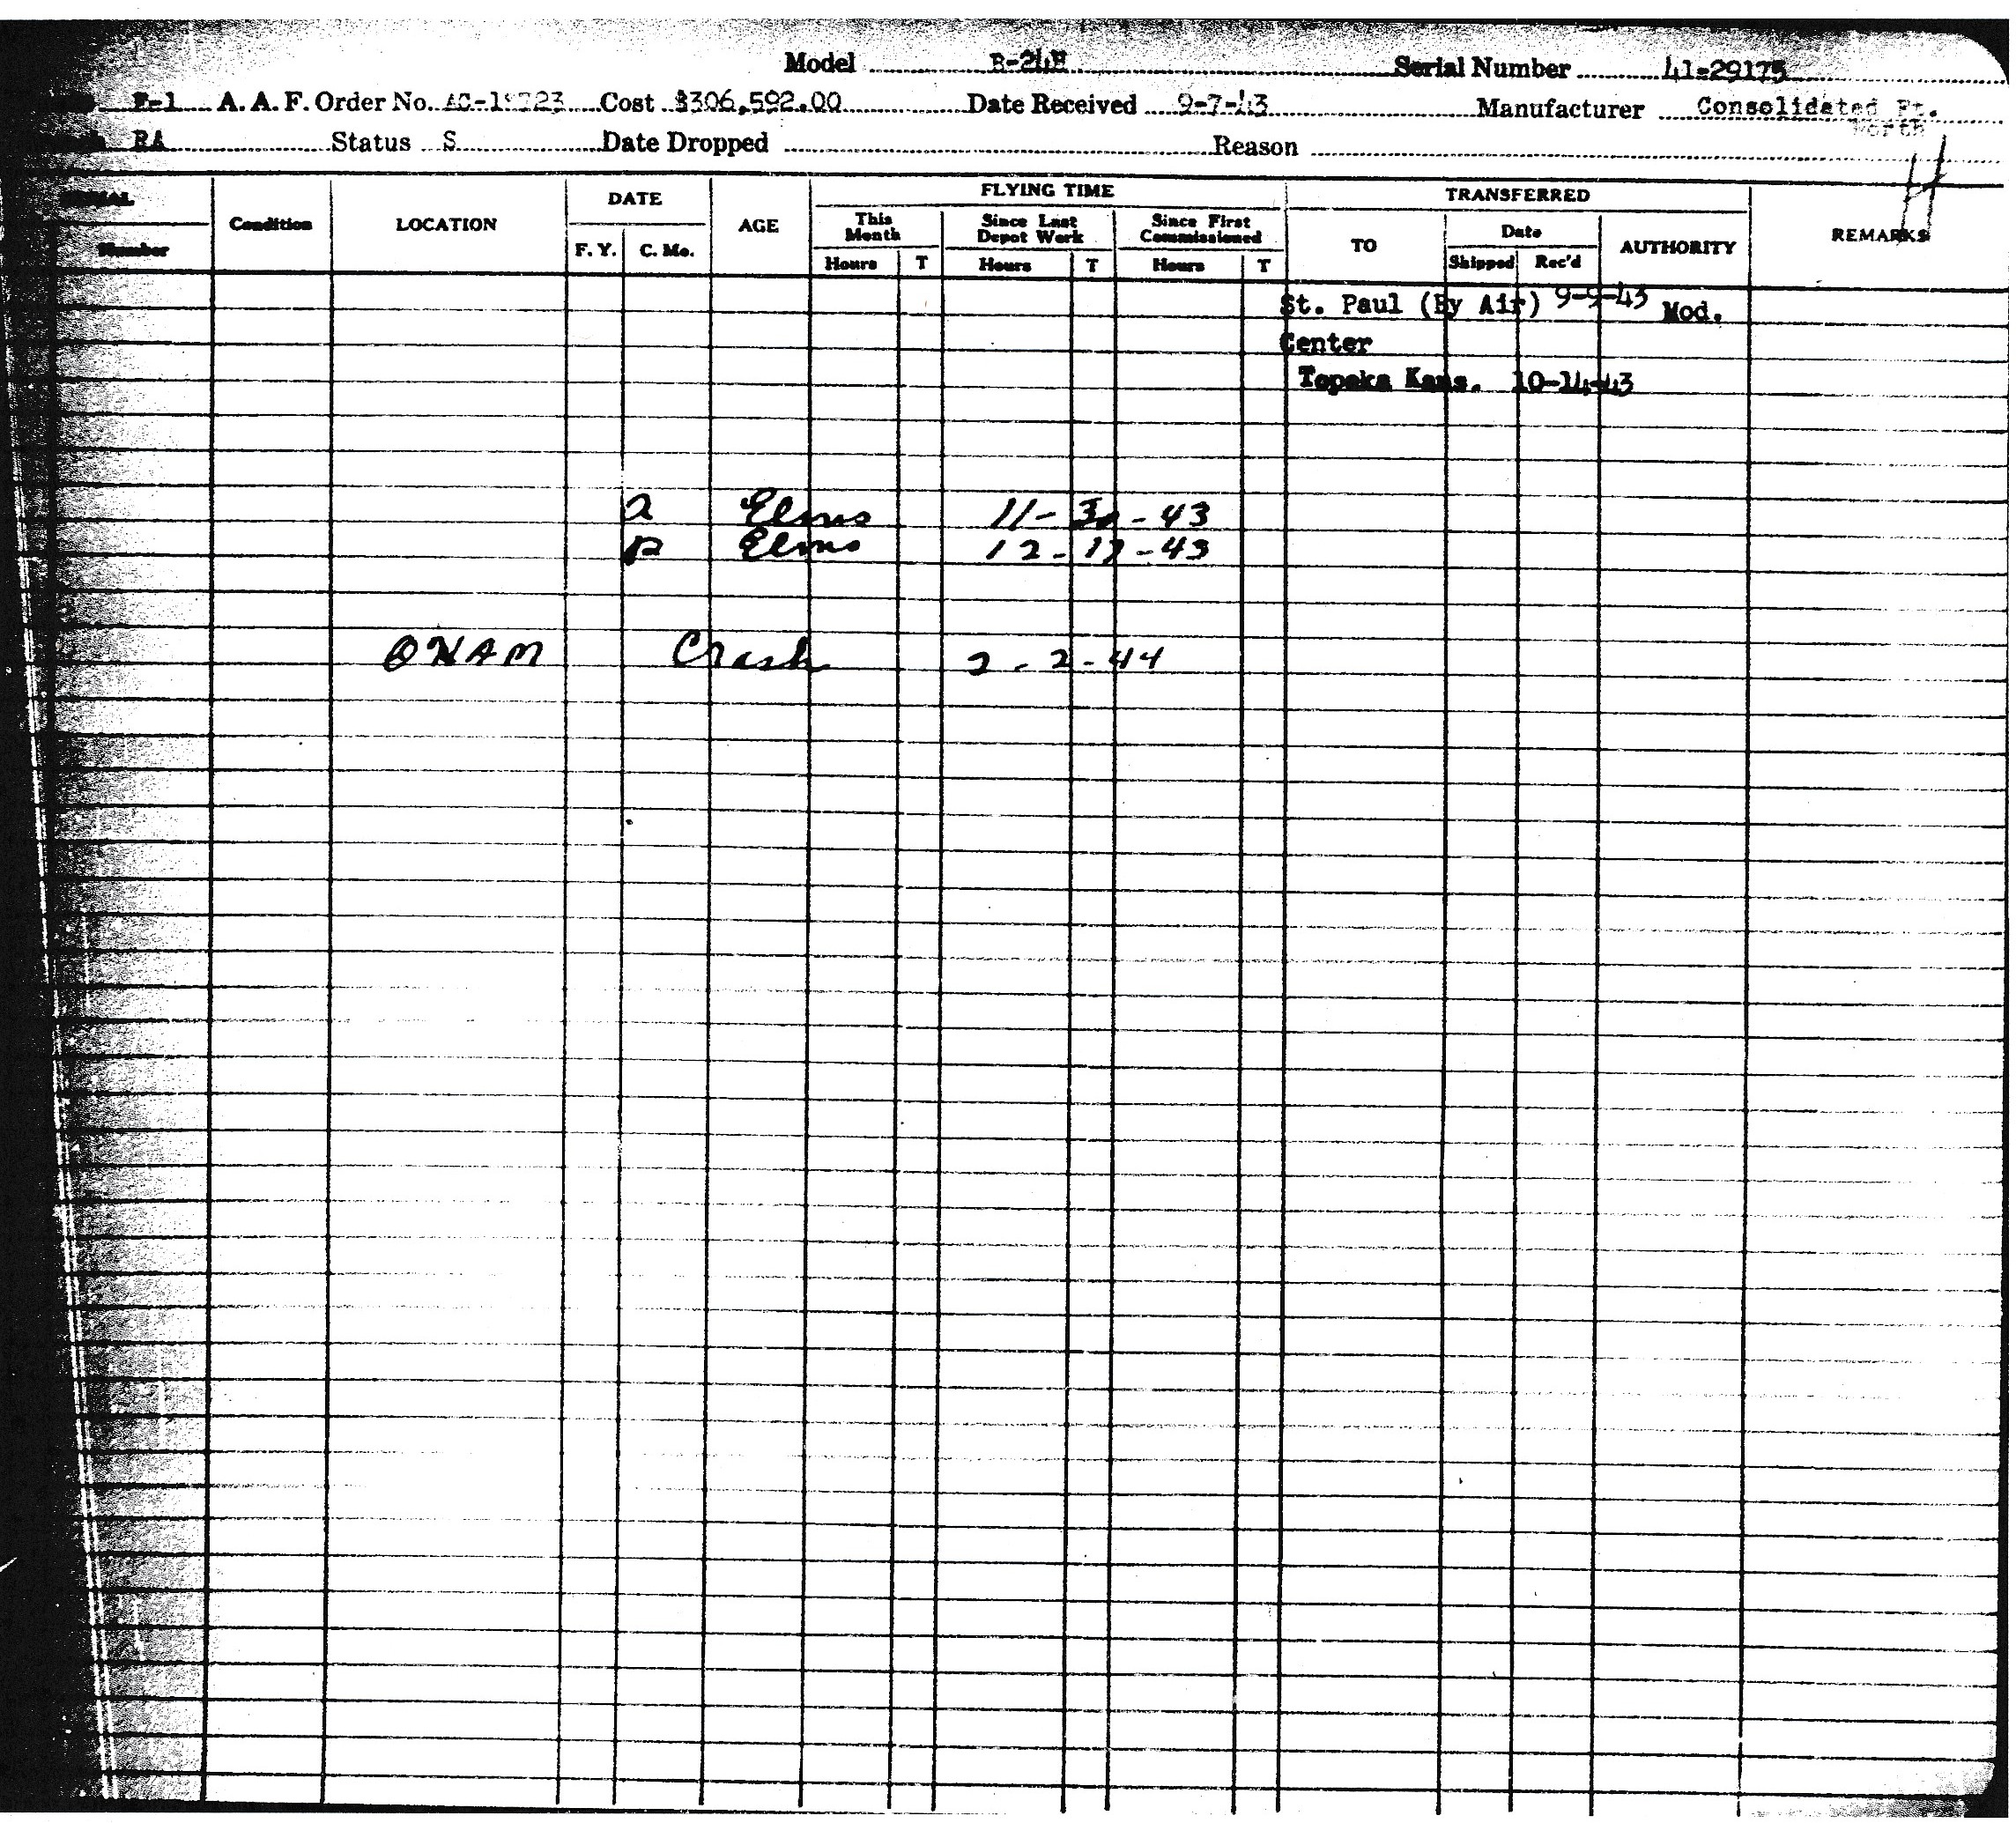 Model B-24H Serial Number 41-29175
E-1 A. A. F. Order No. Cost $306,592.00 Date Received 9-7-43 Manufacturer Consolidated Ft. Worth
RA Status S Date Dropped Reason
SERIAL DATE FLYING TIME TRANSFERRED
Condition LOCATION AGE This Month Since Last Depot Work Since First Commissioned TO Date AUTHORITY REMARKS
Number F. Y. C. Mo. Hours T Hours T Hours T Shipped Rec'd
St. Paul (By Air) 9-9-43 Mod.
Center
Topeka Kans. 10-14-43
a Elms 11-30-43
D Elms 12-17-43
Crash 2-2-44